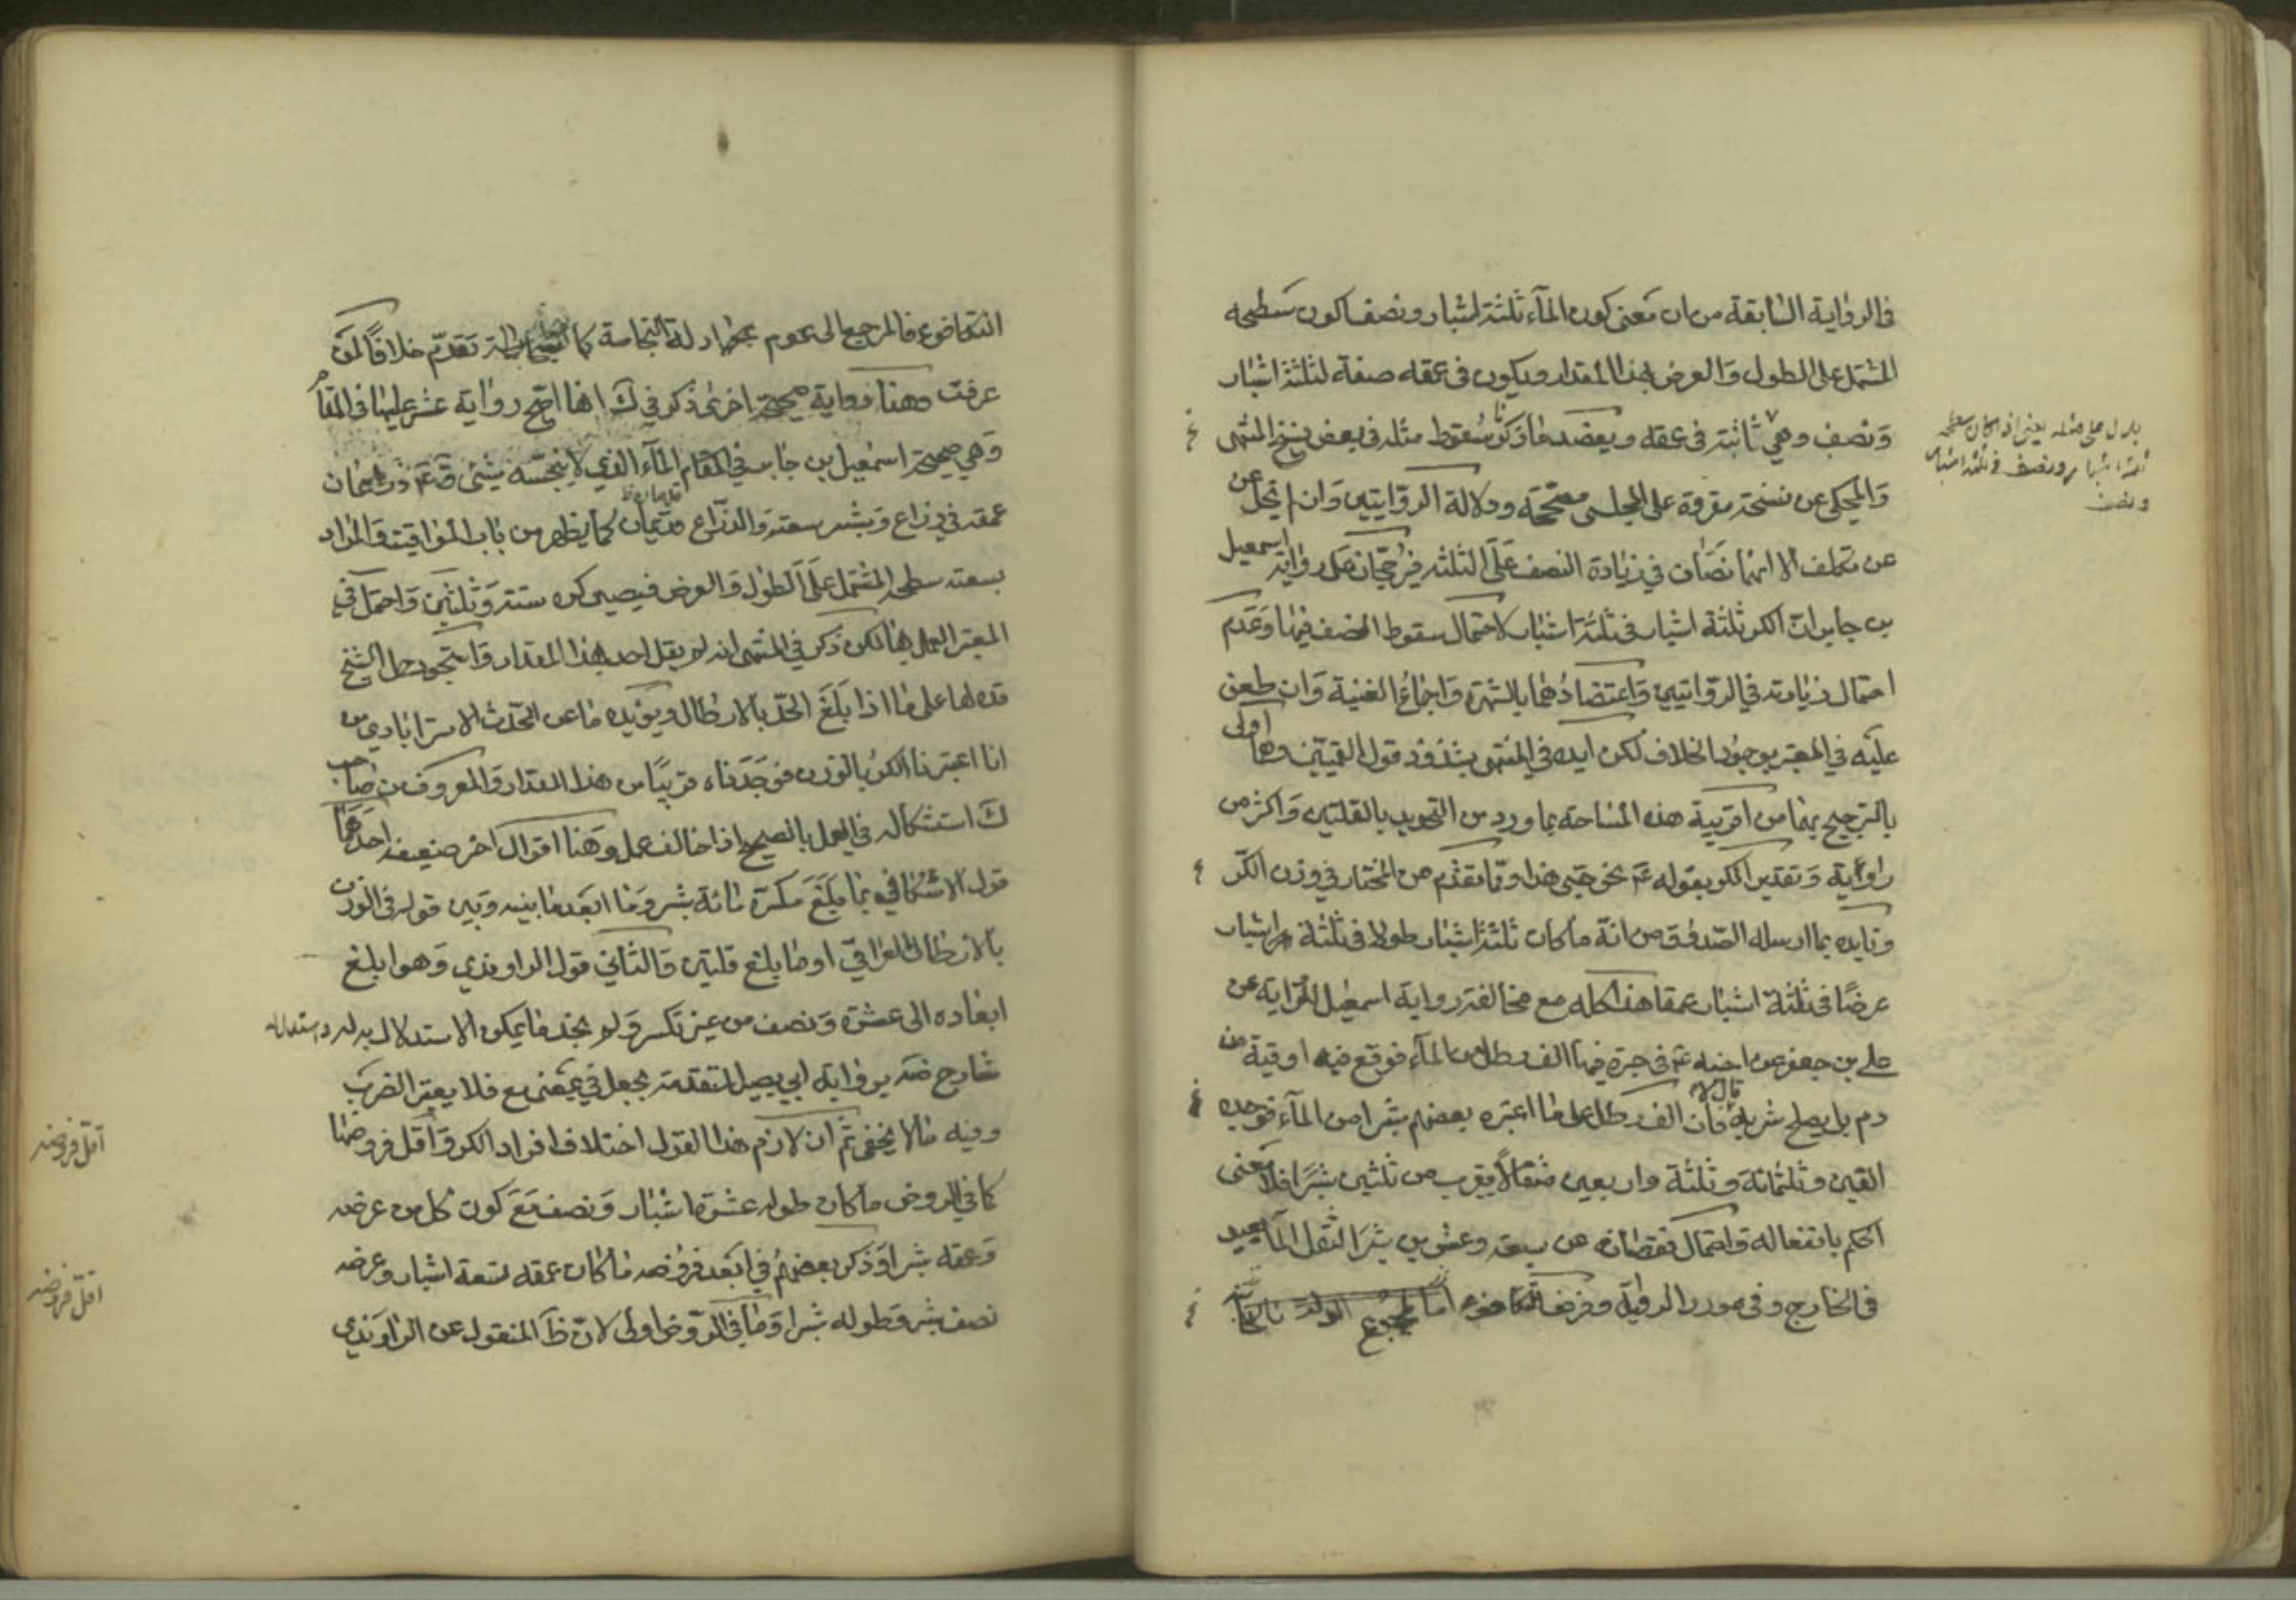 في الرواية السابقة من ان معنى كون المآء ثلثة اشبار ونصف اكون سطحه
المشتمل على الطول والعرض بهذا المقدار ويكون في عمقه صفة لثلثة اشبار
ونصف وهي ثابتة في عمقه ويعضد ما ذكرنا سقوط مثله في بعض نسخ المنتهى
والمحكى عن نسخة مقروة على المجلسى مصححة ودلالة الروايتين وان لم تخل عن
عن تكلف الا انهما نصان في زيادة النصف على الثلثة فيرجحان على رواية اسمعيل
بن جابر ان الكر ثلثة اشبار في ثلثة اشبار لاحتمال سقوط النصف فيها وعدم
احتمال زيادته في الروايتين واعتضادهما بالشهرة واجماع الغنية وان طعن
عليه في المعتبر بوجود الخلاف لكن ايده في المنتهى بشذوذ قول القميين وهما اولى
بالترجيح بهما من اقربية هذه المساحة بما ورد من التحديد بالقلتين واكثر من
راوية وتقدير الكر بقوله ع نحو حبى هذا وبما تقدم من المختار في وزن الكر
وتايده بما ارسله الصدوق من انه ما كان ثلثة اشبار طولا في ثلثة اشبار
عرضا في ثلثة اشبار عمقا هذا كله مع مخالفة رواية اسمعيل لرواية عن
على بن جعفر عن اخيه ع في جرة فيها الف رطل من المآء فوقع فيه اوقية من
دم هل يصلح شربه قال لا فان الف رطل على ما اعتبره بعضهم شبرا من المآء فوجده
الفين وثلثمائة وثلثة واربعين مثقالا يقرب من ثلثين شبرا فلا معنى
الحكم بانفعاله واحتمال نقصانه عن سبعة وعشرين شبرا لثقل المآء بعيد
في الخارج وفي مورد الرواية وفرض التكافوء
بدل على مثله يعنى اذا كان سطحه
ثلثة اشبار ونصف في ثلثة اشبار
ونصف
التكافوء فالمرجع الى عموم ادلة النجاسة كما تقدم خلافا لمن
عرفت وهنا رواية صحيحة اخرى ذكر في ك انها اصح رواية عثر عليها في المقام
وهي صحيحة اسمعيل بن جابر في المقام المآء الذي لا ينجسه شئ قال ع ذراعان
عمقه في ذراع وشبر سعته والذراع قدمان كما يظهر من باب المواقيت والمراد
بسعته سطحه المشتمل على الطول والعرض فيصير كره ستة وثلثين واحتمل في
المعتبر العمل بها لكن ذكر في المنتهى انه لم يقل احد بهذا المقدار واستجود حمل الشيخ
قده لها على ما اذا بلغ الحد بالارطال ويؤيده ما عن المحدث الاسترابادي من
انا اعتبرنا الكر بالوزن فوجدناه قريبا من هذا المقدار والمعروف من صاحب
ك استشكاله في العمل بالصحيح اذا خالف عمل وهنا اقوال اخر ضعيفة احدهما
قول الاسكافي بما بلغ مكسره مائة شبر وما ابعد ما بينه وبين قوله في الوزن
بالارطال العراقي او ما بلغ قلتين والثاني قول الراوندي وهو ما بلغ
ابعاده الى عشرة ونصف من غير تكسير ولم نجد ما يمكن الاستدلال به له واستدل له
شارح ضه برواية ابي بصير المتقدمة بجعل في بمعنى مع فلا يعتبر الضرب
وفيه ما لا يخفى ثم ان لازم هذا القول اختلاف افراد الكر واقل فروضها
كما في الروض ما كان طوله عشرة اشبار ونصف مع كون كل من عرضه
وعمقه شبرا وذكر بعضهم في ابعد فروضه ما كان عمقه تسعة اشبار وعرضه
نصف شبر وطوله شبرا وما في الروض اولى لان ظ المنقول عن الراوندي
اقل فروضه
اقل فروضه